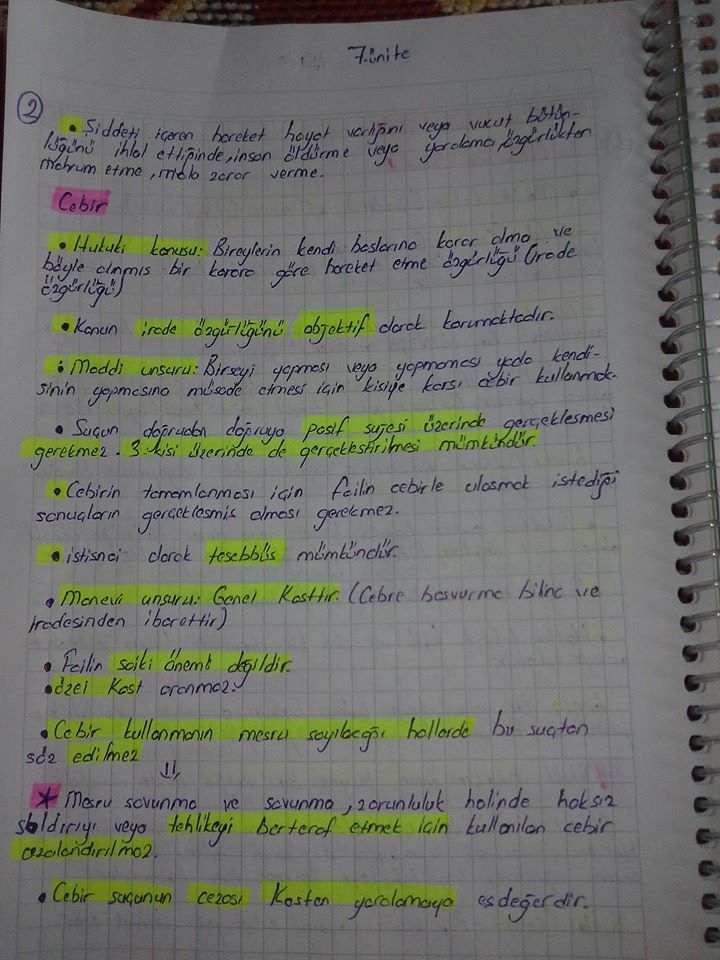 7.ünite
2
• Şiddeti içeren hareket hayat varlığını veya vücut bütün-
lüğünü ihlal ettiğinde, insan öldürme veya yaralama, özgürlükten
mahrum etme, mala zarar verme.
Cebir
• Hukuki konusu: Bireylerin kendi başlarına karar alma ve
böyle alınmış bir karara göre hareket etme özgürlüğü (irade
özgürlüğü)
• Kanun irade özgürlüğünü objektif olarak korumaktadır.
• Maddi unsuru: Birşeyi yapması veya yapmaması yada kendi-
sinin yapmasına müsade etmesi için kişiye karşı cebir kullanmak.
• Suçun doğrudan doğruya pasif sujesi üzerinde gerçekleşmesi
gerekmez. 3. kişi üzerinde de gerçekleştirilmesi mümkündür.
• Cebirin tamamlanması için failin cebirle ulaşmak istediği
sonuçların gerçekleşmiş olması gerekmez.
• istisnai olarak teşebbüs mümkündür.
• Manevi unsuru: Genel Kasttır. (Cebre başvurma bilinc ve
iradesinden ibarettir)
• Failin saiki önemli değildir.
• özel Kast aranmaz.
• Cebir kullanmanın meşru sayılacağı hallerde bu suçtan
söz edilmez
⇓
* Meşru savunma ve savunma, zorunluluk halinde haksız
saldırıyı veya tehlikeyi bertaraf etmek için kullanılan cebir
cezalandırılmaz.
• Cebir suçunun cezası Kasten yaralamaya eşdeğerdir.